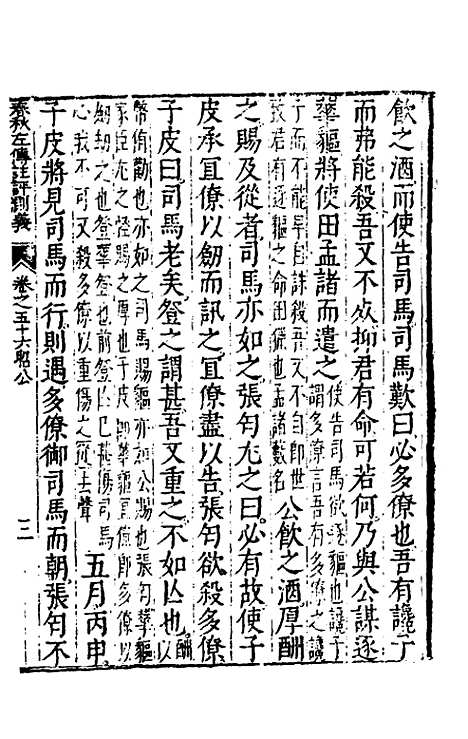 飲之酒而使告司馬司馬歎曰必多僚也吾有讒子
而弗能殺吾又不死抑君有命可若何乃與公謀逐
華貙將使田孟諸而遣之使告司馬欲逐貙也讒子謂多僚言吾有多僚之讒
子而不能早自誅殺吾又不自即世
故君有逐貙之命田獵也孟諸藪名公飲之酒厚酬
之賜及從者司馬亦如之張匄尤之曰必有故使子
皮承宜僚以劒而訊之宜僚盡以告張匄欲殺多僚
子皮曰司馬老矣登之謂甚吾又重之不如亾也酬以
幣侑勸也亦如之司馬賜貙亦如公賜也張匄華貙
家臣尤之怪賜之厚也子皮華貙宜僚即多僚以
劒劫之也登華登也登亾已甚傷司馬
心我不可又殺多僚以重傷之從去聲五月丙申
子皮將見司馬而行則遇多僚御司馬而朝張匄不
春秋左傳註評測義
卷之五十六昭公
三